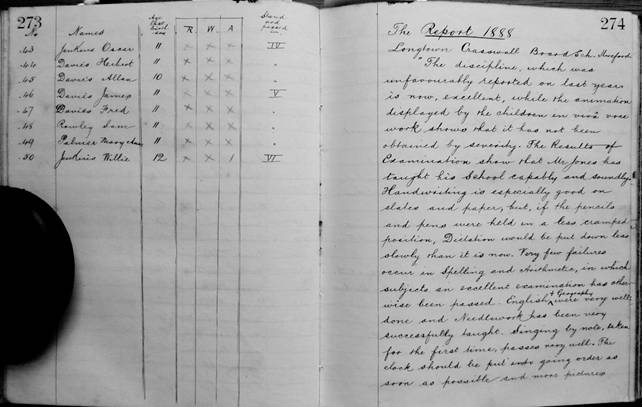 273
No Names Age last birthday R W A Standard passed in
43 Jenkins Oscar 11 × × × IV
44 Davies Herbert 11 × × × "
45 Davies Allan 10 × × × "
46 Davies James 11 × × × V
47 Davies Fred 11 × × × "
48 Rowley Sam 11 × × × "
49 Palmer Mary Ann 11 × × × "
50 Jenkins Willie 12 × × 1 VI
274
The Report 1888
Longtown Craswall Board Sch. Hereford
"The discipline, which was
unfavourably reported on last year
is now, excellent, while the animation
displayed by the children in vivâ voce
work shows that it has not been
obtained by severity. The Results of
Examination show that Mr Jones has
taught his School capably and soundly.
Handwriting is especially good on
slates and paper, but, if the pencils
and pens were held in a less cramped
position, Dictation would be put down less
slowly than it is now. Very few failures
occur in Spelling and Arithmetic, in which
subjects an excellent examination has other-
wise been passed. English + Geography were very well
done and Needlework has been very
successfully taught. Singing by note, taken
for the first time, passes very well. The
clock should be put into going order as
soon as possible and more pictures